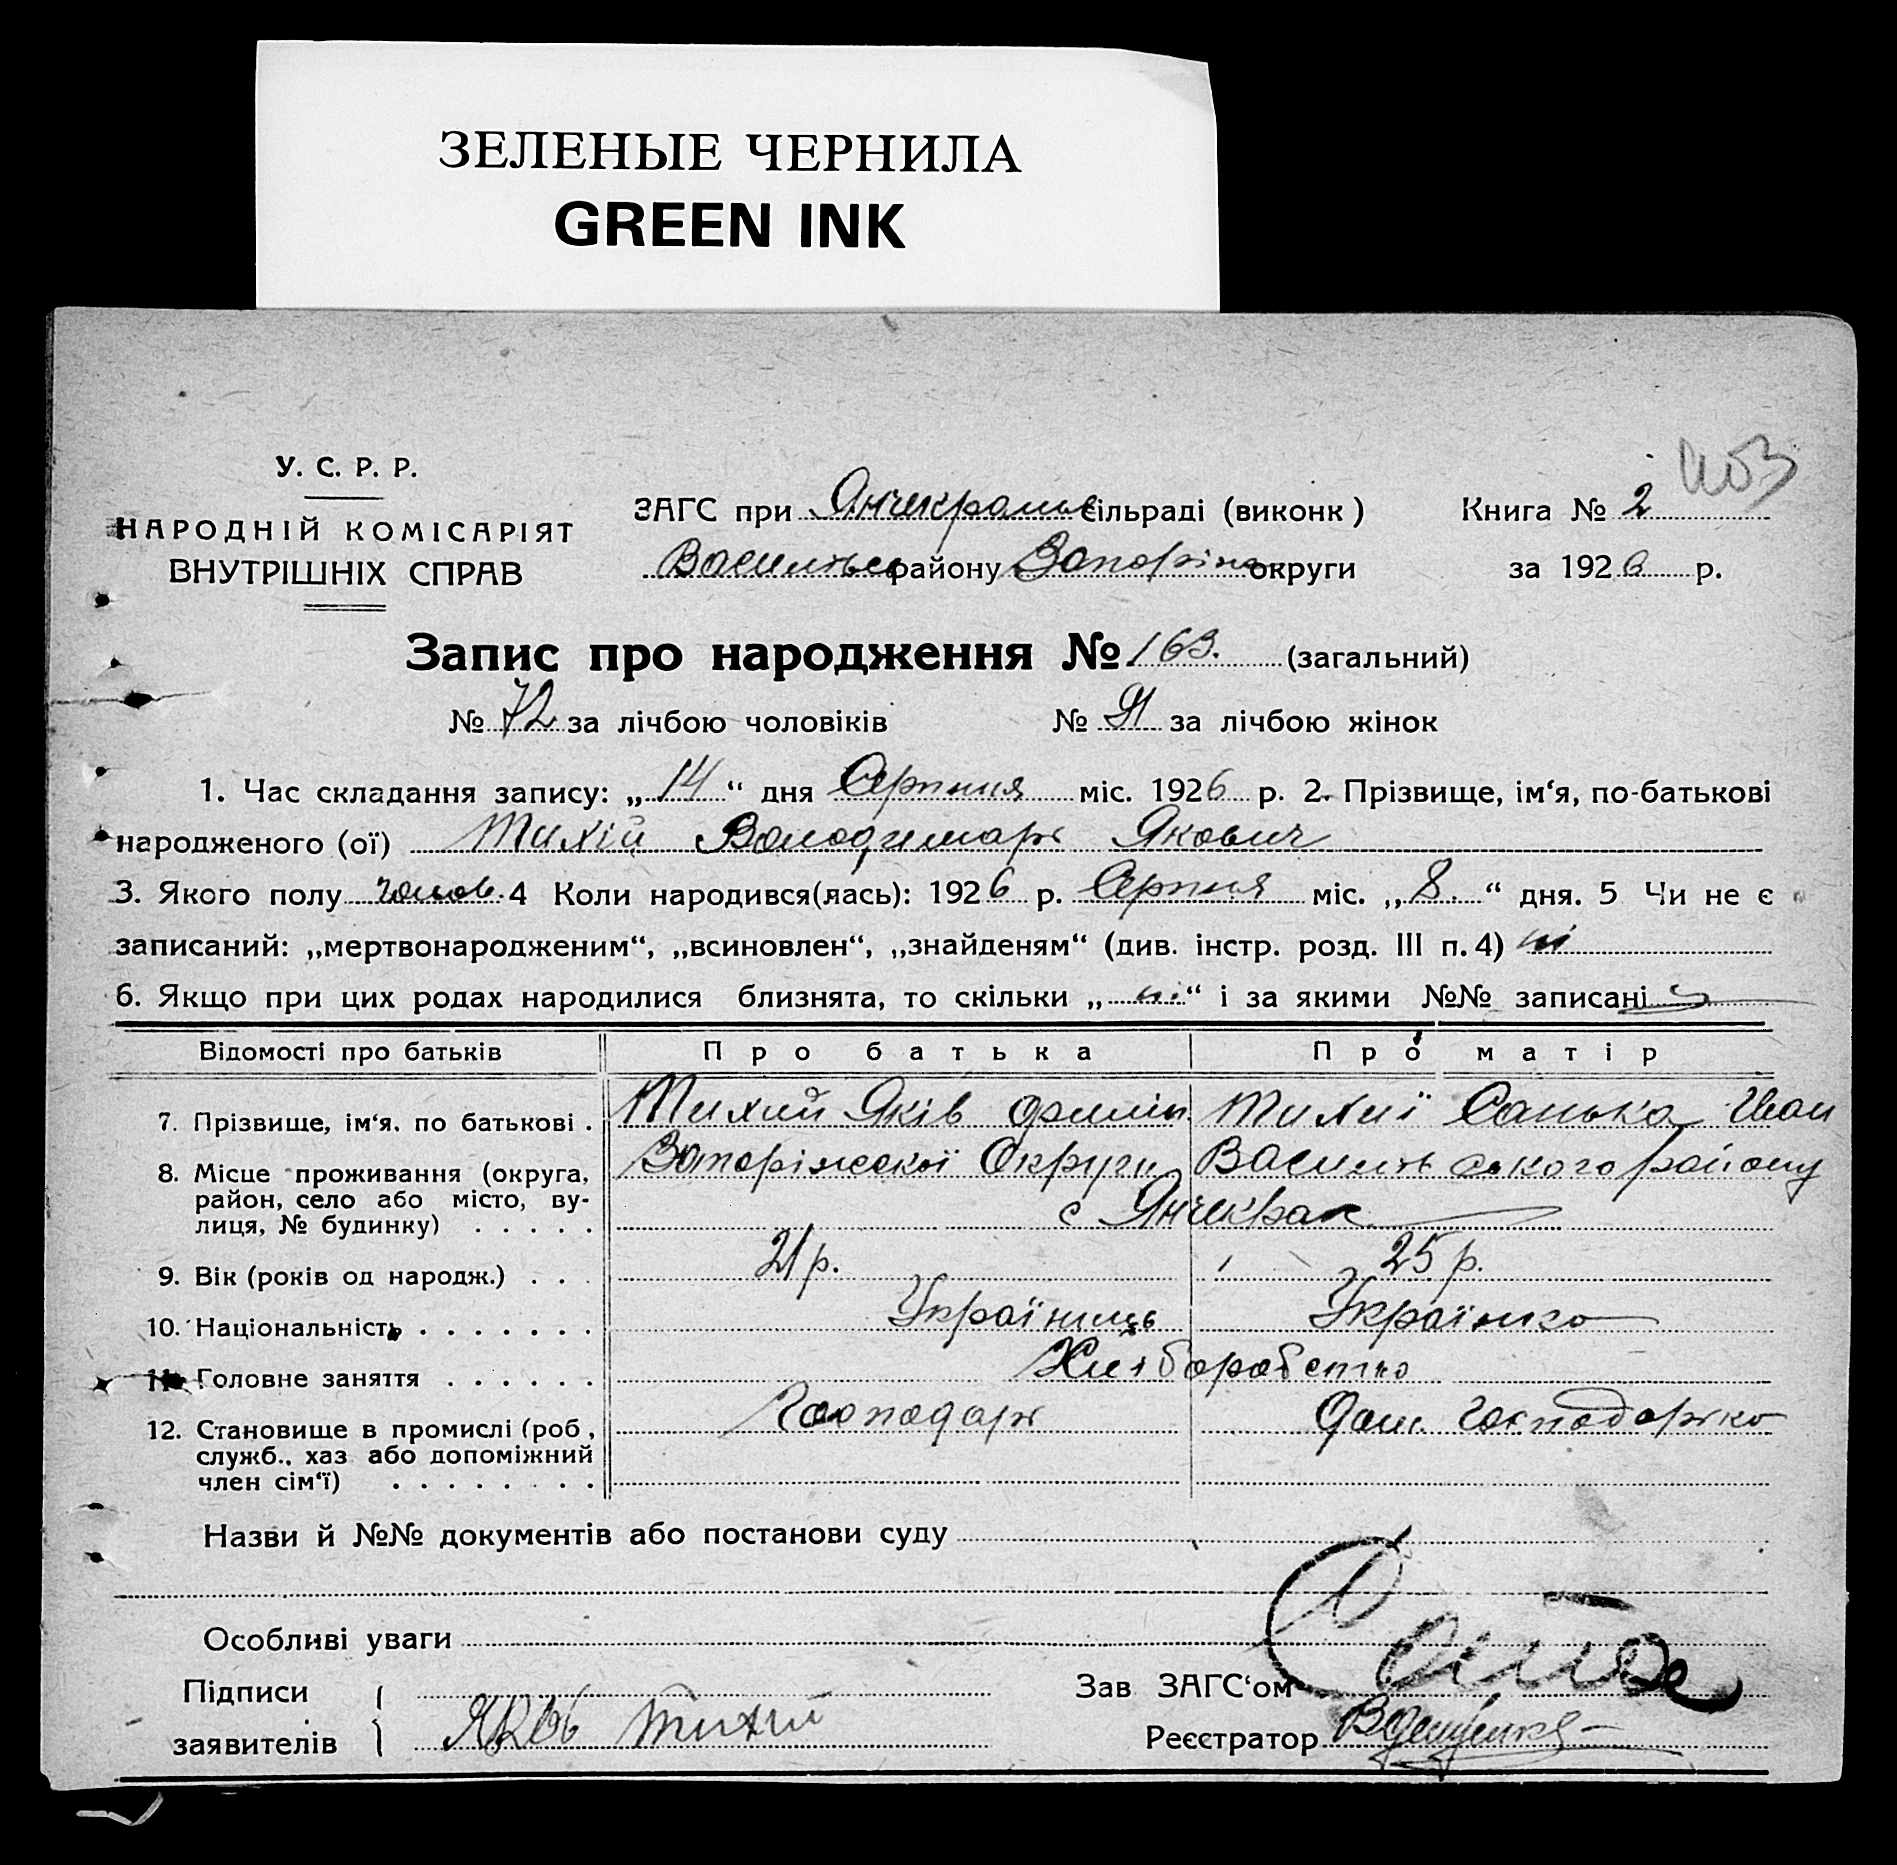 ЗЕЛЕНЫЕ ЧЕРНИЛА
GREEN INK
У. С. Р. Р.
НАРОДНІЙ КОМІСАРІЯТ
ВНУТРІШНІХ СПРАВ
ЗАГС при Янчекраньс сільраді (виконк)
Васильевс району Запоріж округи
Книга № 2
за 1926 р.
Запис про народження № 163. (загальний)
№ 72 за лічбою чоловіків № 91 за лічбою жінок
1. Час складання запису: „14“ дня Серпння міс. 1926 р. 2. Прізвище, ім‘я, по-батькові
народженого (ої) Тихій Володимарь Якович
3. Якого полу чолов. 4 Коли народився(лась): 1926 р. Серпня міс. „8.“ дня. 5 Чи не є
записаний: „мертвонародженим“, „всиновлен“, „знайденям“ (див. інстр. розд. III п. 4) ні
6. Якщо при цих родах народилися близнята, то скільки „ні“ і за якими №№ записані
Відомості про батьків Про батька Про матір
7. Прізвище, ім‘я. по батькові . Тихий Яків Филип Тихиї Санька Іван
8. Місце проживання (округа, Запоріжскої Округи Васильевського району
район, село або місто, ву-
лиця, № будинку) . . . . . с Янчекрак
9. Вік (років од народж.) . . . 21 р. 25 р.
10. Національність . . . . . . . Українець Українка
11. Головне заняття . . . . . . Хліборобство
12. Становище в промислі (роб, Господарь Дом. Господарка
служб., хаз або допоміжний
член сім‘ї) . . . . . . . .
Назви й №№ документів або постанови суду
Особливі уваги
Підписи
заявителів Яков Тихий
Зав ЗАГС‘ом
Реєстратор